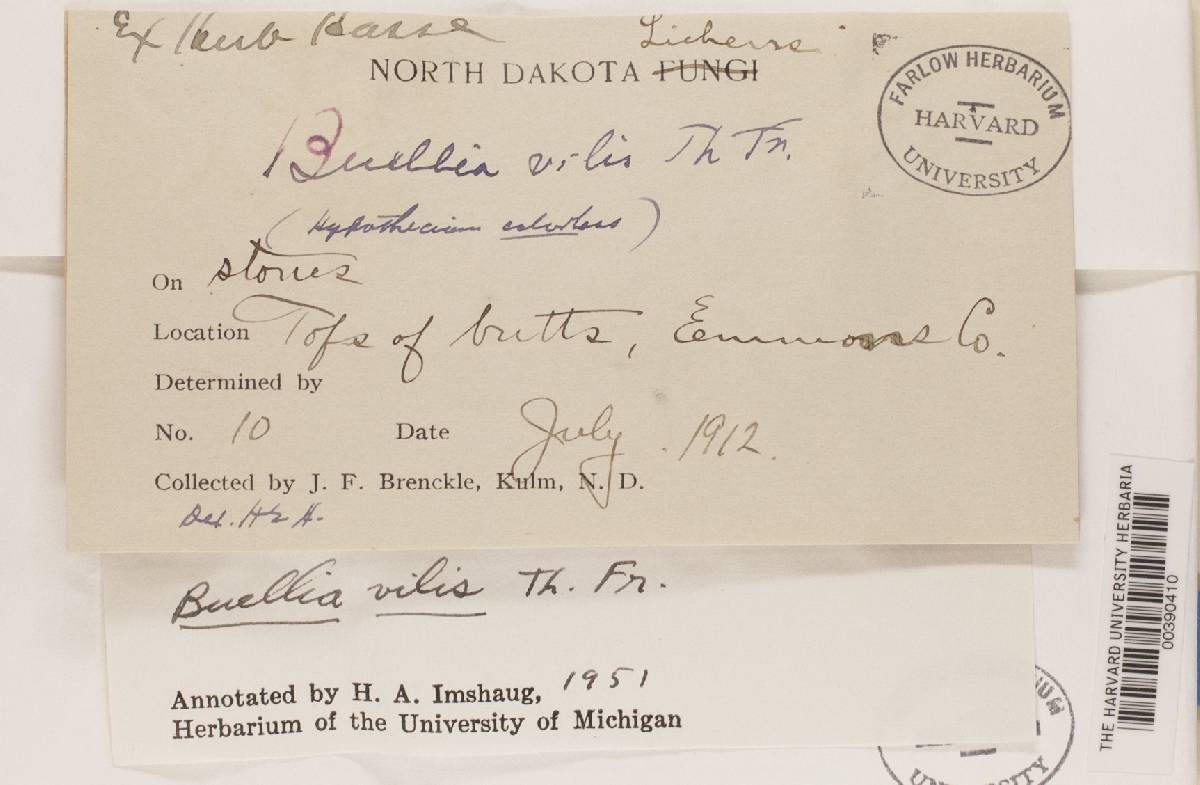 Ex Herb Hasse
Lichens
NORTH DAKOTA FUNGI
FARLOW HERBARIUM
HARVARD
UNIVERSITY
Buellia vilis Th Fr.
(Hypothecium colorless)
On stones
Location Tops of butts, Emmons Co.
Determined by
No. 10 Date July. 1912.
Collected by J. F. Brenckle, Kulm, N. D.
Det.
Buellia vilis Th. Fr.
Annotated by H. A. Imshaug, 1951
Herbarium of the University of Michigan
THE HARVARD UNIVERSITY HERBARIA
00390410